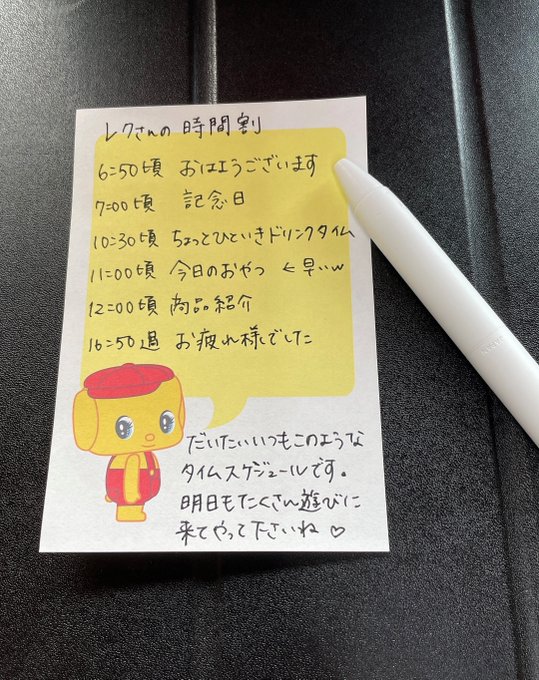 レクさんの 時間割
6:50頃 おはようございます
7:00頃 記念日
10:30頃 ちょっとひといきドリンクタイム
11:00頃 今日のおやつ ← 早いw
12:00頃 商品紹介
16:50過 お疲れ様でした
だいたいいつもこのような
タイムスケジュールです。
明日もたくさん遊びに
来てやって下さいね ♡